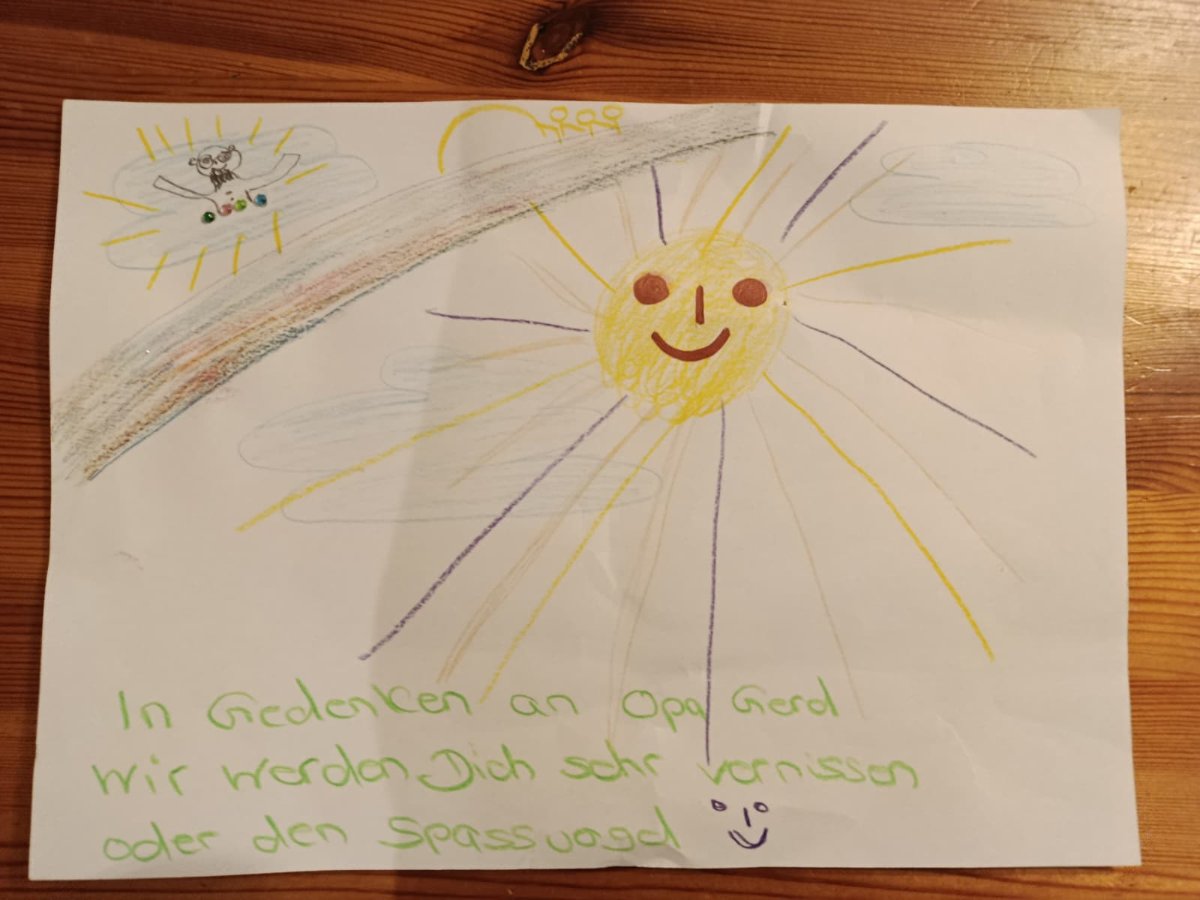 In Gedenken an Opa Gerd
Wir werden Dich sehr vermissen
oder den Spassvogel